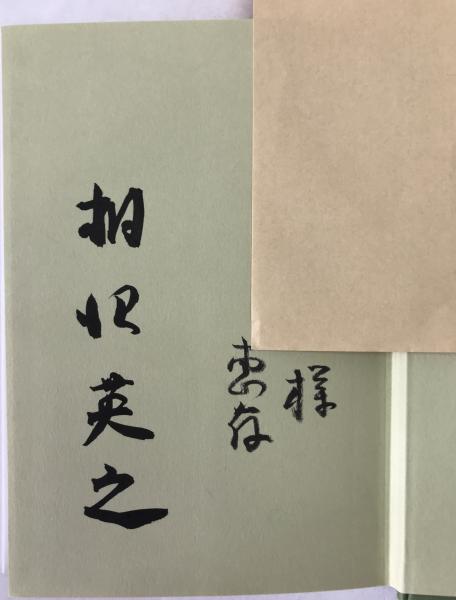 様
恵存
相沢英之